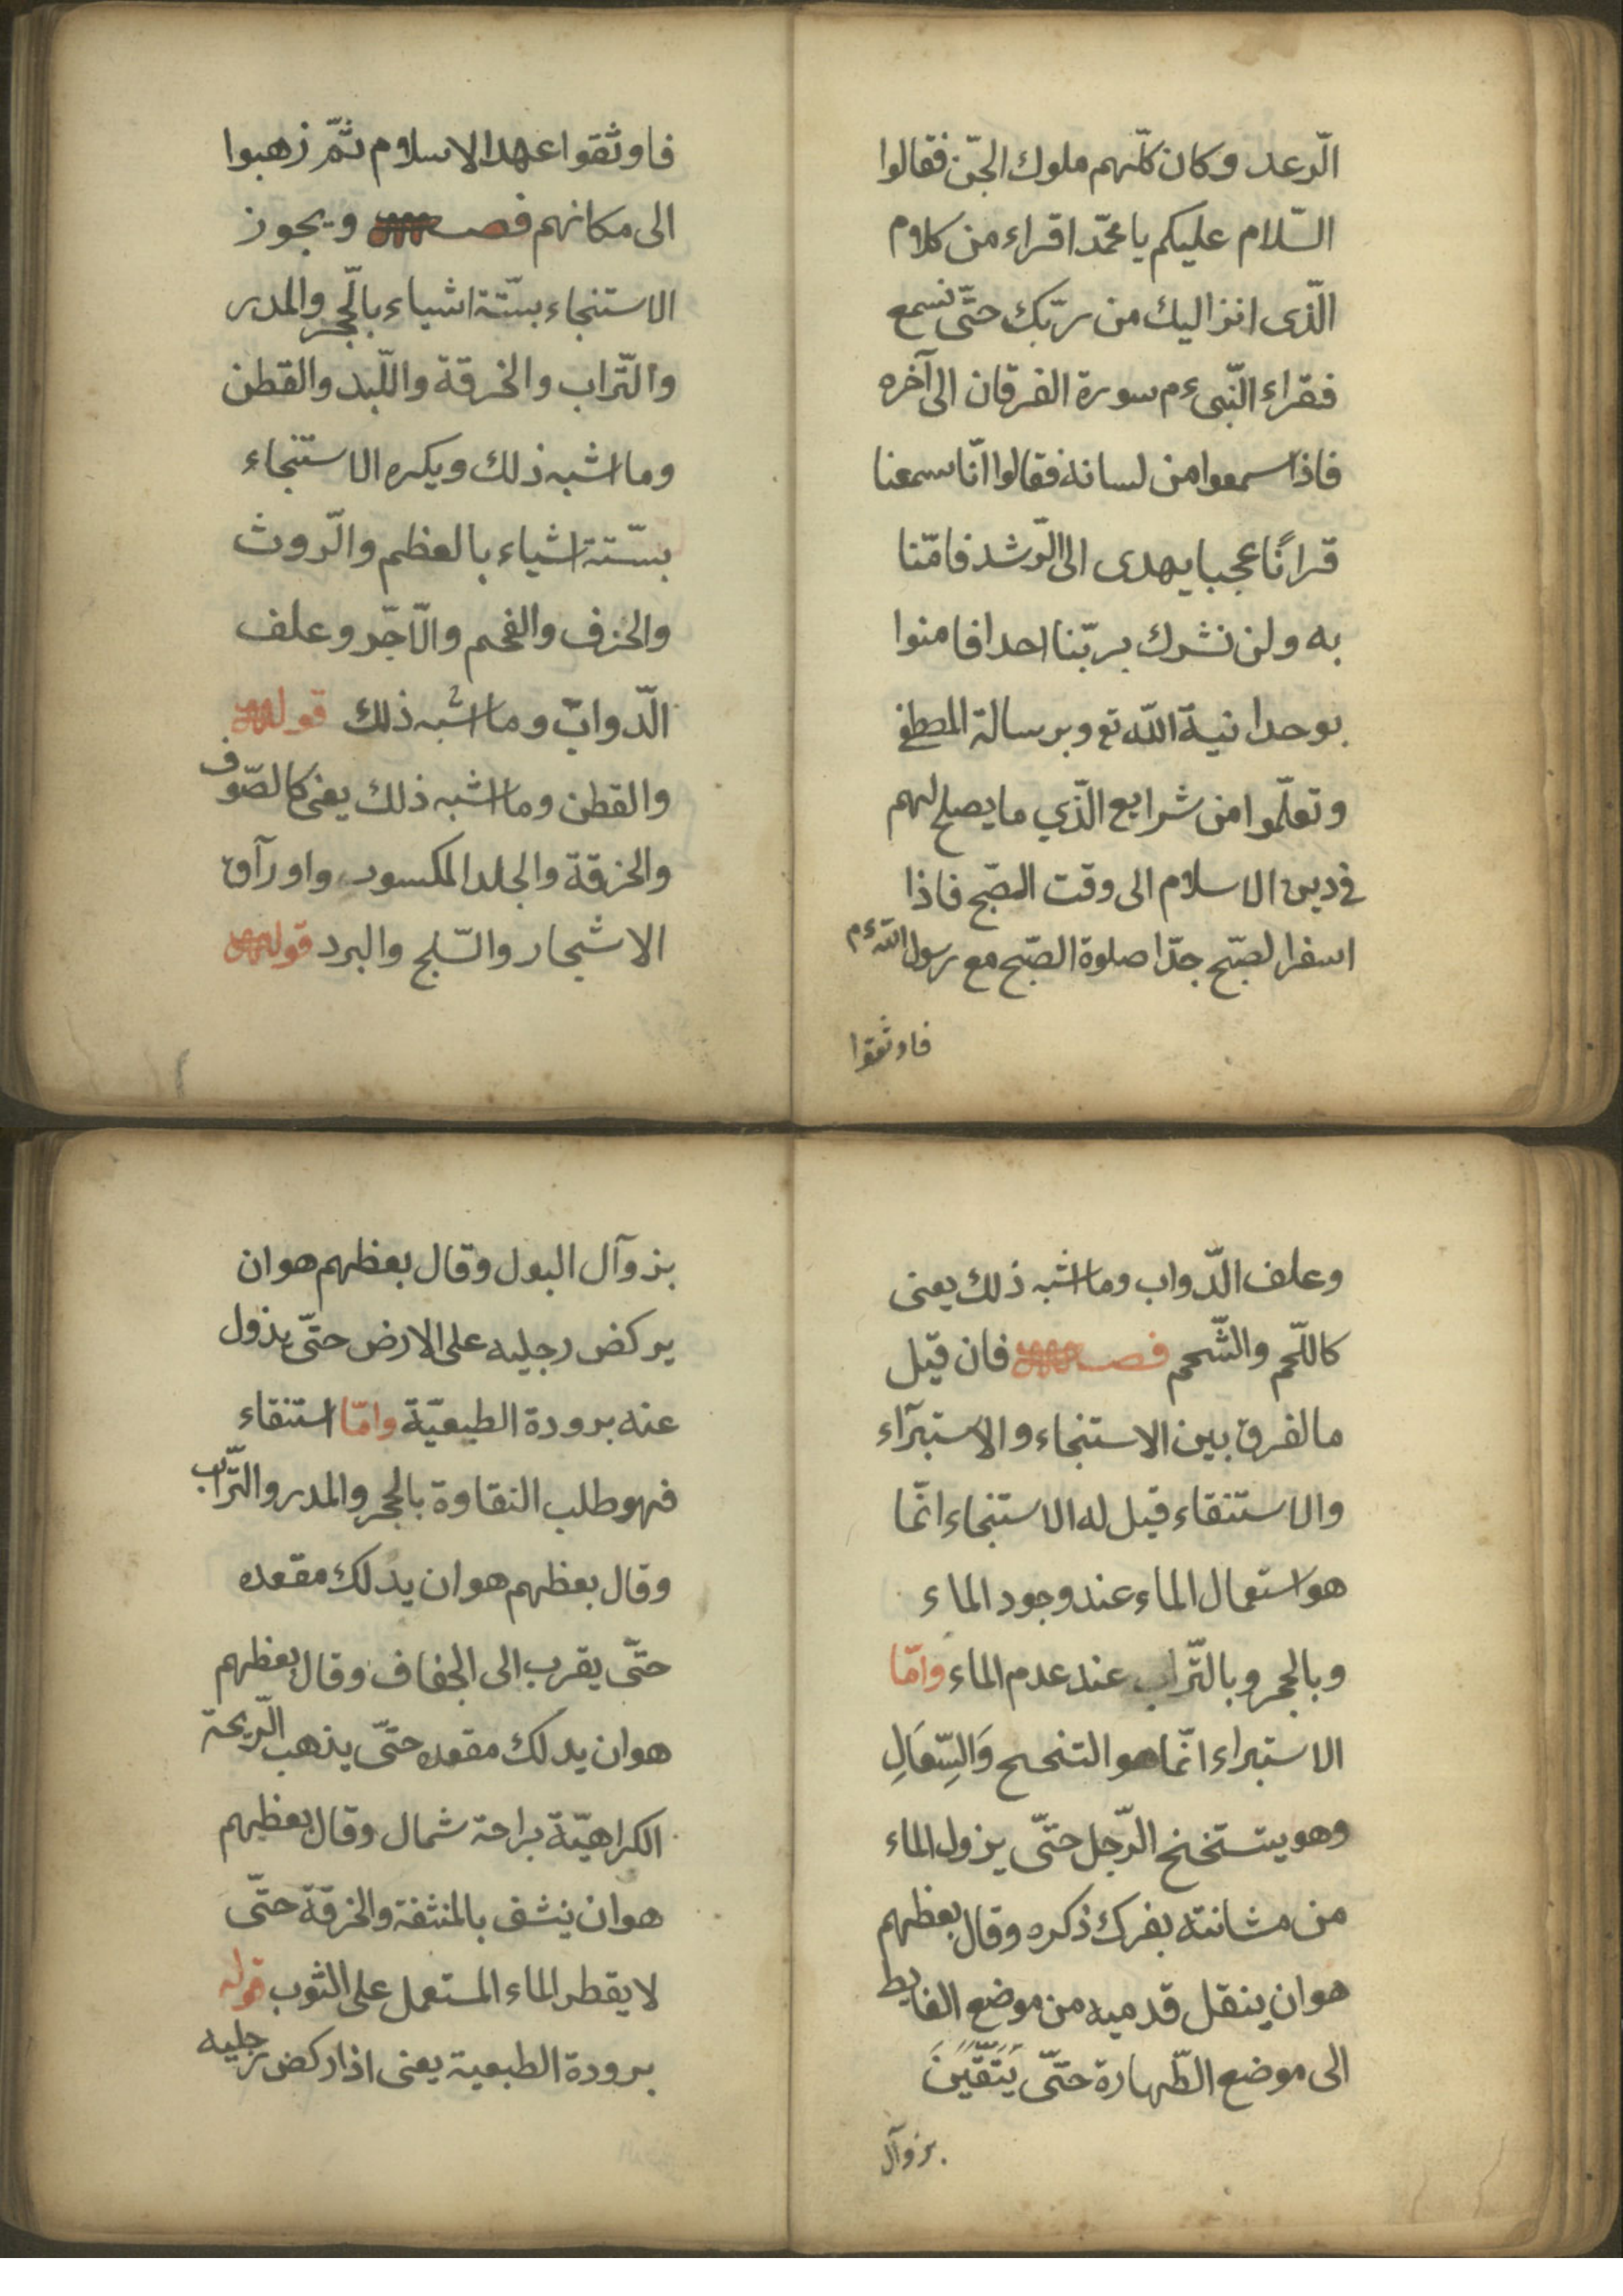 الرّعد وكان كلّهم ملوك الجنّ فقالوا
السّلام عليكم يا محمّد اقراء من كلام
الّذى انزاليك من ربّك حتّى نسمع
فقراء النّبىءم سورة الفرقان الى آخره
فاذا سمعوا من لسانه فقالوا انّا سمعنا
قرانًا عجبا يهدى الى الرّشد فامّنا
به ولن نشرك بربّنا احدا فامنوا
بوحدانية اللّه تع وبرسالة المصطفى
وتعلّموا من شرايع الّذي ما يصلح لهم
فى دين الاسلام الى وقت الصّبح فاذا
اسفر الصّبح جدّا صلوة الصّبح مع رسول اللّه ءم
فاوثقوا
فاوثقوا عهد الاسلام ثمّ زهبوا
الى مكانهم فصـــل ويجوز
الاستنجاء بستّة اشياء بالحّجر والمدر
والتّراب والخرقة واللّبد والقطن
وما اشبه ذلك ويكره الاستنجاء
بستّة اشياء بالعظم والرّوث
والخزف والفحم والآجّر وعلف
الدّوابّ وما اشبه ذلك قوله
والقطن وما اشبه ذلك يعنى كالصّوف
والخرقة والجلد المكسور واورآق
الاشجار والثّلج والبرد قوله
وعلف الدّواب وما اشبه ذلك يعنى
كاللّحم والشّحم فصـــل فان قيل
مالفرق بين الاستنجاء والاستبرآء
والاستنقاء قيل له الاستنجاء انّما
هو استعمال الماء عند وجود الماء
وبالحجر وبالتّراب عند عدم الماء وامّا
الاستبراء انّما هو التنحح وَالسِّعَالِ
وهو يتستخنح الرّجل حتّى يزول الماء
من مشانته بفرك ذكره وقال بعظهم
هو ان ينقل قدميه من موضع الغايط
الى موضع الطّهارة حتّى يَتَّقَّيَنَ
بزوآل
بزوآل البول وقال بعظهم هو ان
يركض رجليه على الارض حتّى يذول
عنه برودة الطيعيّة وامّا استنقاء
فهو طلب النقاوة بالحجر والمدر والتّراب
وقال بعظهم هو ان يدلك مقعده
حتّى يقرب الى الجفاف وقال بعظهم
هو ان يدلك مقعده حتّى يذهب الرّيحة
الكراهيّة براحة شمال وقال بعظهم
هو ان ينشف بالمنثفة والخرقة حتّى
لا يقطر الماء المستعمل على الثوب قوله
برودة الطبعية يعنى اذا ركض رجليه